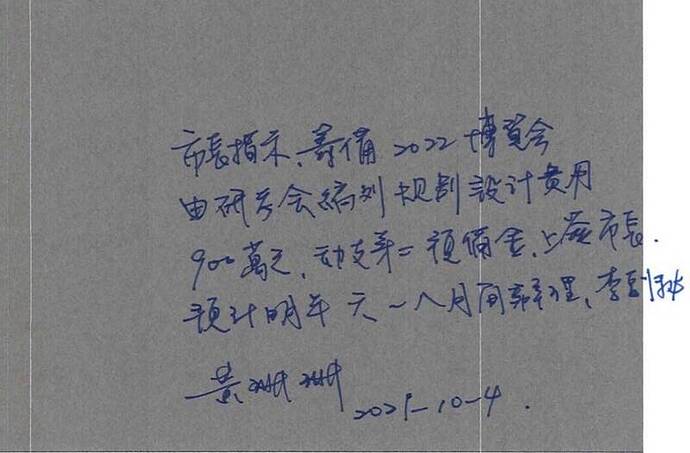 市長指示、籌備2022博覽会
由研考会編列規劃設計費用
900萬元、動支第二預備金、上簽市長.
預計明年六-八月間辦理、李副秘
黃珊珊 2021-10-4.